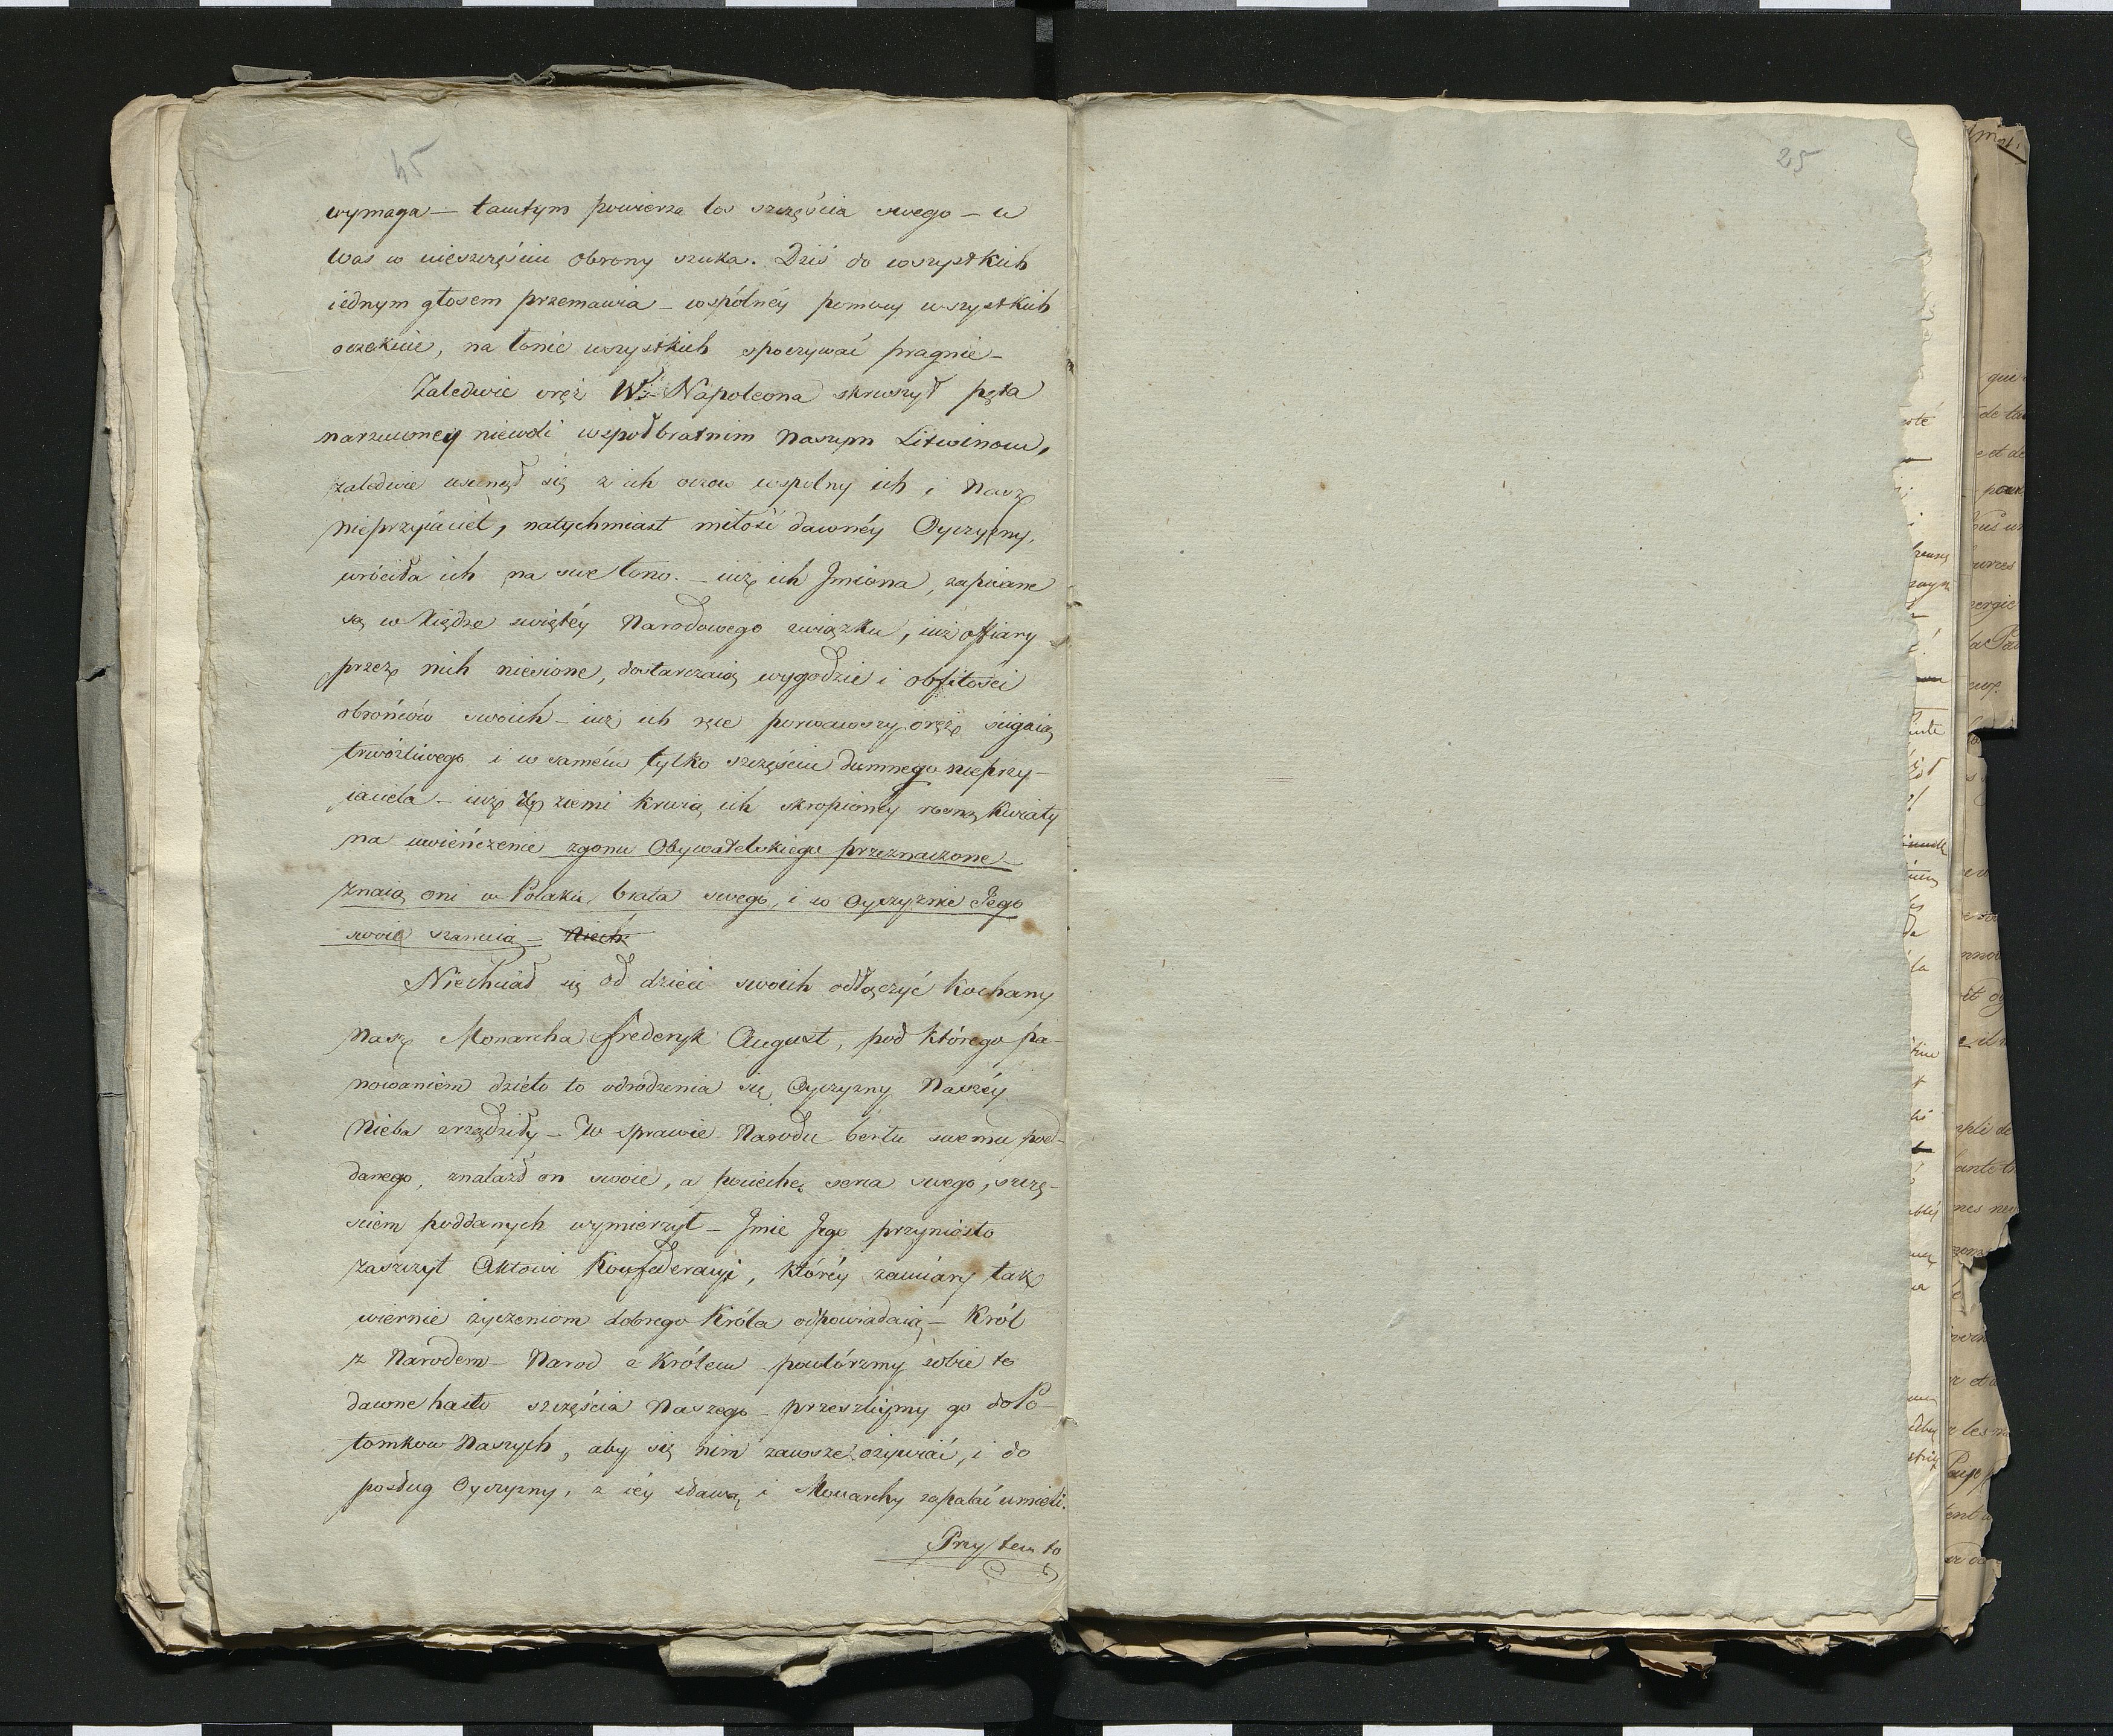 45
25
wymaga – tamtym powierza los szczęścia swego – w
was w nieszczęściu obrony szuka. Dziś do wszystkich
iednym głosem przemawia – wspólnéy pomocy wszystkich
oczekuie, na łonie wszystkich spoczywać pragnie –
Zaledwie oręż W. Napoleona skruszył pęta
narzuconey niewoli wspołbratnim Naszym Litwinom,
zaledwie usunął się z ich oczow wspolny ich i Nasz
nieprzyiaciel, natychmiast miłość dawnéy Oyczyzny,
wróciła ich na swe łono. – iuż ich Imiona, zapisane
są w księdze swiętéy Narodowego związku, iuż offiary
przez nich niesione, dostarczaią wygodzie i obfitości
obrońców swoich – iuż ich ręce porwawszy oręż scigaią
trwożliwego i w samém tylko szczęściu dumnego nieprzy-
iaciela – iuż z ziemi krwią ich skropioney rosną kwiaty
na uwieńczenie zgonu Obywatelskiego przeznaczone –
znaią oni w Polaku brata swego, i w Oyczyznie Jego
swoię szanuią – Niech
Niechciał się od dzieci swoich odłączyć kochany
Nasz Monarcha Frederyk August, pod którego pa-
nowaniem dzieło to odrodzenia się Oyczyzny Naszéy
Nieba zrządziły – W sprawie Narodu berłu swemu pod-
danego, znalazł on swoie, a pociechę serca swego, szczę-
sciem poddanych wymierzył – Imie Jego przyniosło
zaszczyt Aktowi Konfederacyi, któréy zamiary tak
wiernie życzeniom dobrego Króla odpowiadaią – Król
z Narodem – Narod z Królem – powtórzmy sobie to
dawne hasło szczęścia Naszego – przeszlijmy go do Po-
tomkow Naszych, aby się nim zawsze ożywiać, i do
posług Oyczyzny, z iéy sławą i Monarchy zapałać umieli.
Przy tem to